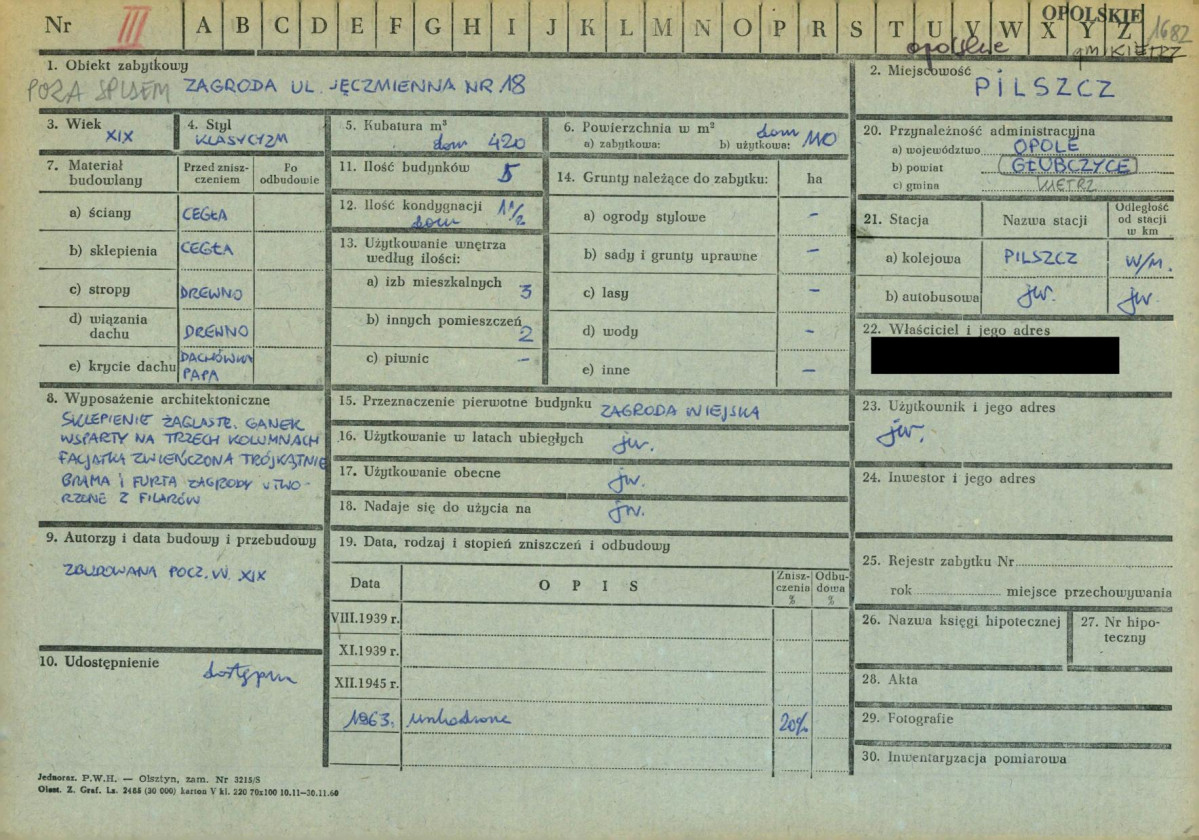 Nr III A B C D E F G H I J K L M N O P R S T U V W X Y Z
OPOLSKIE
1682
opolskie
gm. KIETRZ
1. Obiekt zabytkowy
POZA SPISEM ZAGRODA UL. JĘCZMIENNA NR 18
2. Miejscowość
PILSZCZ
3. Wiek
XIX
4. Styl
KLASYCYZM
5. Kubatura m³
dom 420
6. Powierzchnia w m²
dom
a) zabytkowa: b) użytkowa: 110
20. Przynależność administracyjna
a) województwo OPOLE
b) powiat GŁUBCZYCE
c) gmina
7. Materiał budowlany
Przed znisz-
czeniem
Po
odbudowie
a) ściany CEGŁA
b) sklepienia CEGŁA
c) stropy DREWNO
d) wiązania
dachu DREWNO
e) krycie dachu DACHÓWKA
PAPA
11. Ilość budynków 5
12. Ilość kondygnacji 1 1/2
dom
13. Użytkowanie wnętrza
według ilości:
a) izb mieszkalnych 3
b) innych pomieszczeń 2
c) piwnic –
14. Grunty należące do zabytku: ha
a) ogrody stylowe –
b) sady i grunty uprawne –
c) lasy –
d) wody –
e) inne –
21. Stacja
Nazwa stacji
Odległość
od stacji
w km
a) kolejowa PILSZCZ W/M.
b) autobusowa jw. jw.
22. Właściciel i jego adres
8. Wyposażenie architektoniczne
SKLEPIENIE ŻAGLASTE. GANEK
WSPARTY NA TRZECH KOLUMNACH
FACJATKA ZWIEŃCZONA TRÓJKĄTNIE
BRAMA I FURTA ZAGRODY UTWO-
RZONE Z FILARÓW
15. Przeznaczenie pierwotne budynku ZAGRODA WIEJSKA
16. Użytkowanie w latach ubiegłych jw.
17. Użytkowanie obecne jw.
18. Nadaje się do użycia na jw.
23. Użytkownik i jego adres
jw.
24. Inwestor i jego adres
9. Autorzy i data budowy i przebudowy
ZBUDOWANA POCZ. W. XIX
10. Udostępnienie
dostępna
19. Data, rodzaj i stopień zniszczeń i odbudowy
Data
OPIS
Znisz-
czenia
%
Odbu-
dowa
%
VIII.1939 r.
XI.1939 r.
XII.1945 r.
1963. uszkodzone 20%
25. Rejestr zabytku Nr
rok miejsce przechowywania
26. Nazwa księgi hipotecznej
27. Nr hipo-
teczny
28. Akta
29. Fotografie
30. Inwentaryzacja pomiarowa
Jednoraz. P.W.H. — Olsztyn, zam. Nr 3215/S
Olszt. Z. Graf. Ls. 2465 (30 000) karton V kl. 220 70x100 10.11—30.11.60